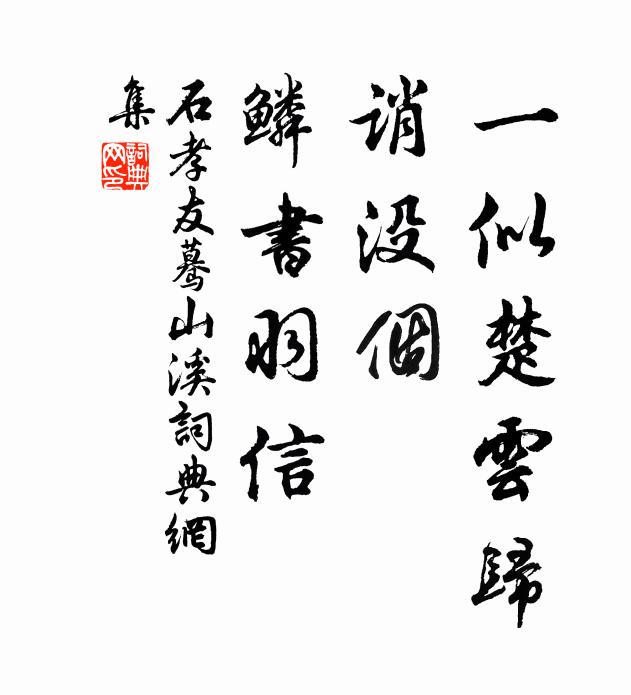 一似楚雲歸
誚没個
鱗書羽信
石孝友驀山溪詞典網
集
詞典网印